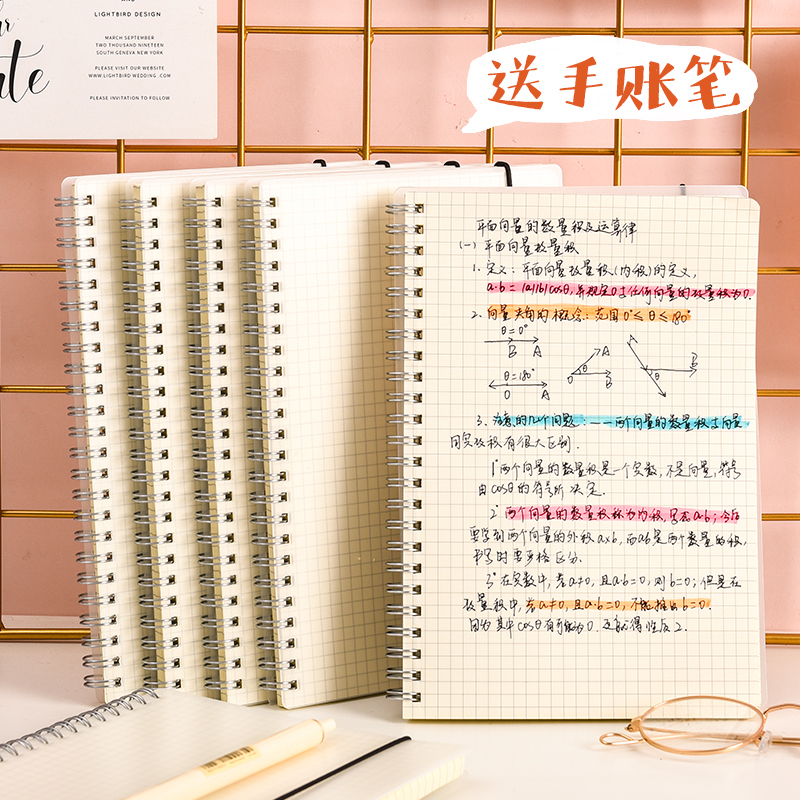 LIGHTBIRD DESIGN
MARCH SEPTEMBER
TWO THOUSAND NINETEEN
SOUTH GENEVA NEW YORK
PLEASE VISIT OUR WEBSITE
WWW.LIGHTBIRD WEDDING.COM
PLEASE INVITATION TO FOLLOW
送手账笔
平面向量的数量积及运算律
(一) 平面向量数量积
1. 定义：平面向量数量积(内积)的定义,
a·b = |a||b|cosθ, 并规定0与任何向量的数量积为0.
2. 向量夹角的概念：范围0°≤θ≤180°
θ=0°
B A
θ=180°
O A
A
O θ B
A
θ B
3. 注意的几个问题：——两个向量的数量积与向量
同实数积有很大区别.
1° 两个向量的数量积是一个实数，不是向量，符号
由cosθ的符号所决定.
2° 两个向量的数量积称为内积，写成a·b；今后
要学到两个向量的外积a×b，而ab是两个数量的积，
书写时要严格区分.
3° 在实数中，若a≠0，且a·b=0，则b=0；但是在
数量积中，若a≠0，且a·b=0，不能推出b=0.
因为其中cosθ有可能为0.